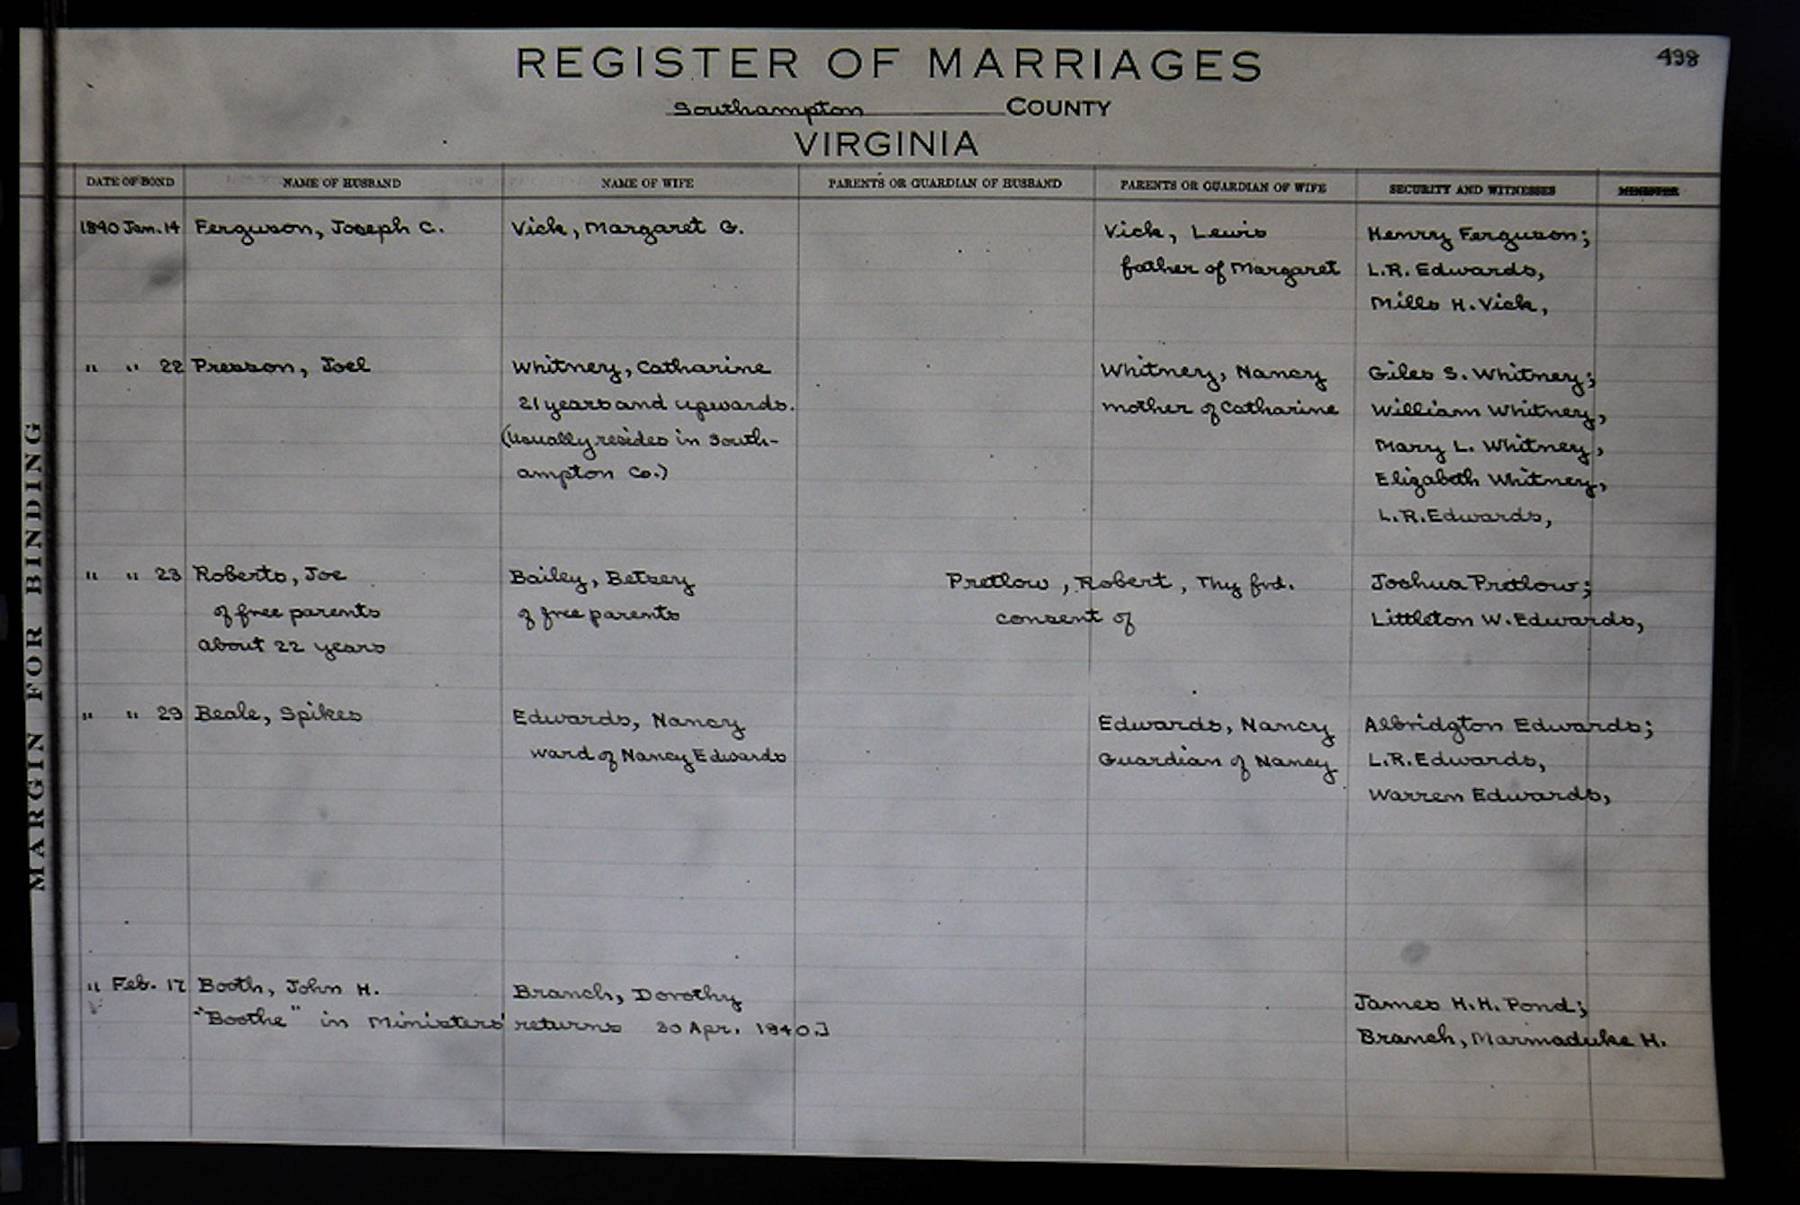 498
REGISTER OF MARRIAGES
Southampton COUNTY
VIRGINIA
MARGIN FOR BINDING
DATE OF BOND NAME OF HUSBAND NAME OF WIFE PARENTS OR GUARDIAN OF HUSBAND PARENTS OR GUARDIAN OF WIFE SECURITY AND WITNESSES MINISTER
1840 Jan. 14 Ferguson, Joseph C. Vick, Margaret G. Vick, Lewis Henry Ferguson;
father of Margaret L.R. Edwards,
Mills H. Vick,
" " 22 Presson, Joel Whitney, Catharine Whitney, Nancy Giles S. Whitney;
21 years and upwards. mother of Catharine William Whitney,
(Usually resides in South- Mary L. Whitney,
ampton Co.) Elizabeth Whitney,
L.R. Edwards,
" " 23 Roberts, Joe Bailey, Betsey Pretlow, Robert, Thy frd. Joshua Pretlow;
of free parents of free parents consent of Littleton W. Edwards,
about 22 years
" " 29 Beale, Spikes Edwards, Nancy Edwards, Nancy Albridgton Edwards;
ward of Nancy Edwards Guardian of Nancy L.R. Edwards,
Warren Edwards,
" Feb. 17 Booth, John H. Branch, Dorothy James H.H. Pond;
"Boothe" in Ministers' returns 30 Apr. 1840.] Branch, Marmaduke H.